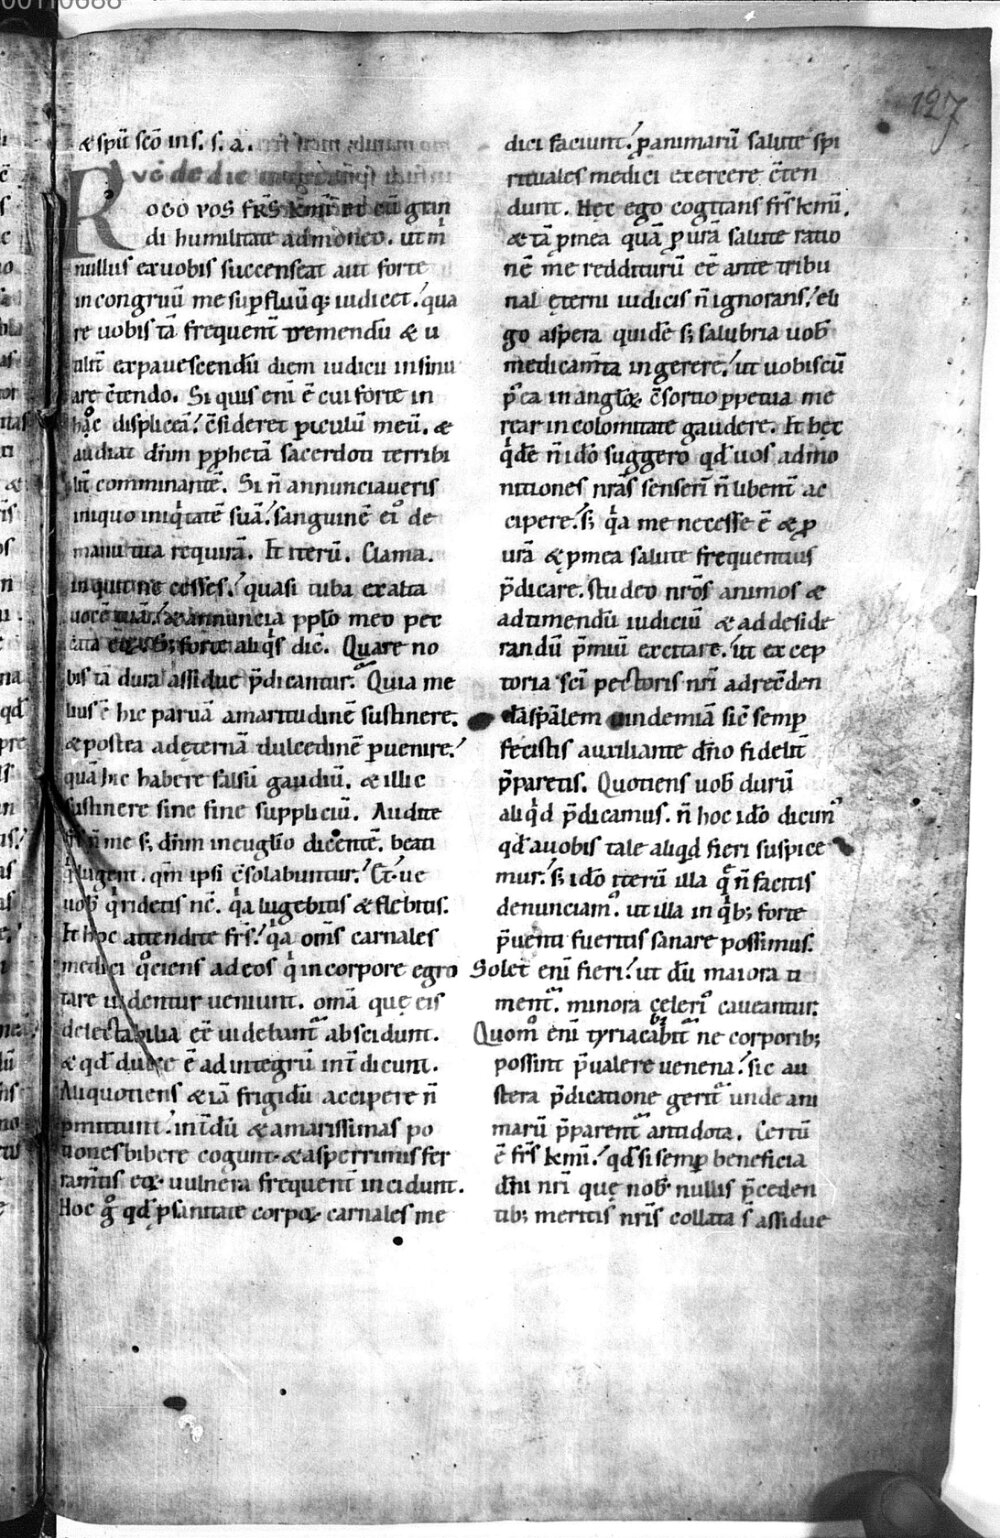 00110688
127
& spū scō in s. s. a.
de die
Rogo vos frs̄ kmī et cū gran
di humilitate admoneo. ut nr̄
nullus ex uobis succenseat aut forte
incongruū me supfluūq; iudicet. qua
re uobis tā frequent̄ tremendū & u
alit̄ expauescendū diem iudicii insinu
are c̄tendo. Si quis enī ē cui forte in
hoc displiceā. c̄sideret piculū meū. &
audiat dn̄m p pphetā sacerdoti terribi
lit̄ comminantē. Si n̄ annunciaueris
iniquo iniqͥtatē suā. sanguinē eiꝰ de
manu tua requirā. Et iterū. Clama.
inquit ne cesses. quasi tuba exalta
uocē tuā. & annuncia pplo meo pec
cata eoꝝ. S; forte aliqͥs dic̄. Quare no
bis tā dura assidue p̄dicantur. Quia me
lius ē hic paruā amaritudinē sustinere.
& postea ad eternā dulcedinē puenire.
quā hic habere falsū gaudiū. & illic
sustinere sine fine suppliciū. Audite
frs̄ n̄ me s; dn̄m in euglio dicentē. beati
qͥ lugent. qm̄ ipsi c̄solabuntur. Et. ue
uob̄ qͥ ridetis nc̄. qͥa lugebitis & flebitis.
Et hoc attendite frs̄. qͥa oms̄ carnales
medici qͦciens ad eos qͥ in corpore egro
tare uidentur ueniunt. omā quę eis
delectabilia ēē uidebantᷣ abscidunt.
& qd̄ dulce ē ad integrū int̄dicunt.
Aliquotiens & iā frigidū accipere n̄
pmittunt. int̄dū & amarissimas po
tiones bibere cogunt. & asperrimis fer
ram̄tis eoꝝ uulnera frequent̄ incidunt.
Hoc g̊ qd̄ p sanitate corpoꝝ carnales me
dici faciunt. p animarū salute spi
rituales medici exercere c̄ten
dunt. Hęc ego cogitans frs̄ kmī.
& tā p mea quā p ur̄a salute ratio
nē me redditurū ēē ante tribu
nal ęterni iudicis n̄ ignorans. eli
go aspera quidē s; salubria uob̄
medicam̄ta ingerere. ut uobiscū
p̊ ea in angloꝝ c̄sortio ppetua me
rear incolomitate gaudere. Et hęc
qͥdē n̄ idō suggero qd̄ uos admo
nitiones nr̄as senserī n̄ libent̄ ac
cipere. s; qͥa me necesse ē & p
ur̄a & p mea salute frequentius
p̄dicare. studeo nr̄os animos &
ad timendū iudiciū & ad deside
randū p̄miū excitare. ut excep
toria sc̄i pectoris nr̄i ad recēden
dā spalem uindemiā sic̄ semp
fecistis auxiliante dn̄o fidelit̄
p̄paretis. Quotiens uob̄ durū
aliqͥd p̄dicamus. n̄ hoc idō dicimꝰ
qd̄ a uobis tale aliqd̄ fieri suspice
mur. s; idō iterū illa q̄ n̄ facitis
denunciamꝰ. ut illa in qͥb; forte
p̄uenti fueritis sanare possimus.
Solet enī fieri. ut dū maiora ti
mentᷣ. minora celeriꝰ caueantur.
Quomͦ enī tyriaca bibitᷣ ne corporib;
possint p̄ualere uenena. sic au
stera p̄dicatione geritᷣ unde ani
marū p̄parentᷣ antidota. Certū
ē frs̄ kmī. qd̄ si semp beneficia
dn̄i nr̄i que nob̄ nullis p̄ceden
tib; meritis nr̄is collata s̄ assidue